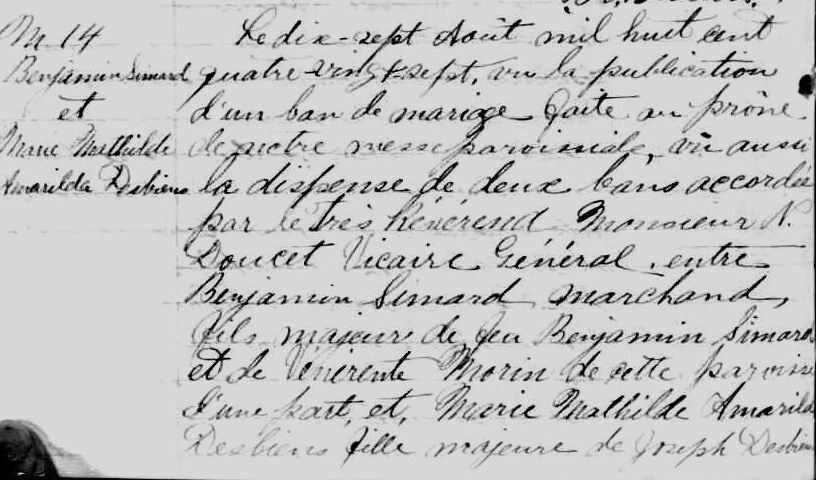 M 14
Benjamin Simard
et
Marie Mathilde
Amarilda Desbiens
Le dix-sept Août mil huit cent
quatre-vingt-sept, vu la publication
d'un ban de mariage faite au prône
de notre messe paroissiale, vu aussi
la dispense de deux bans accordée
par le Très Révérend Monsieur N.
Doucet Vicaire Général, entre
Benjamin Simard, marchand,
fils majeure de feu Benjamin Simard
et de Vénérente Morin de cette paroisse
d'une part, et, Marie Mathilde Amarilda
Desbiens fille majeure de Joseph Desbiens